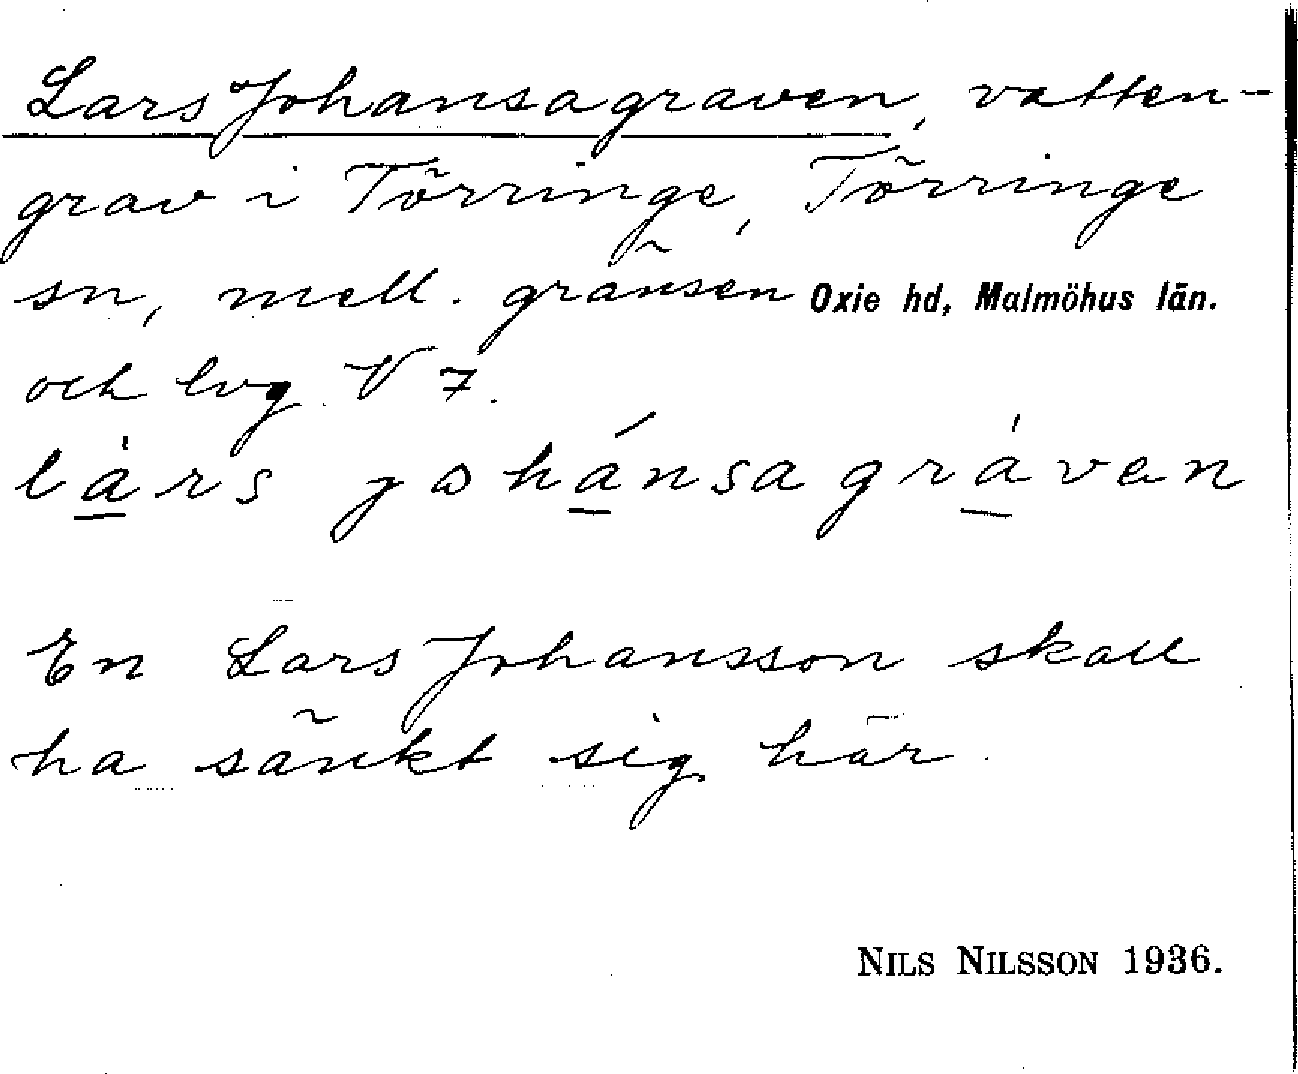 Lars Johansagraven, vatten-
grav i Törringe, Törringe
sn, mell. gränsen Oxie hd, Malmöhus län.
och lvg. V 7.
lárs johánsagráven
En Lars Johansson skall
ha sänkt sig här.
NILS NILSSON 1936.